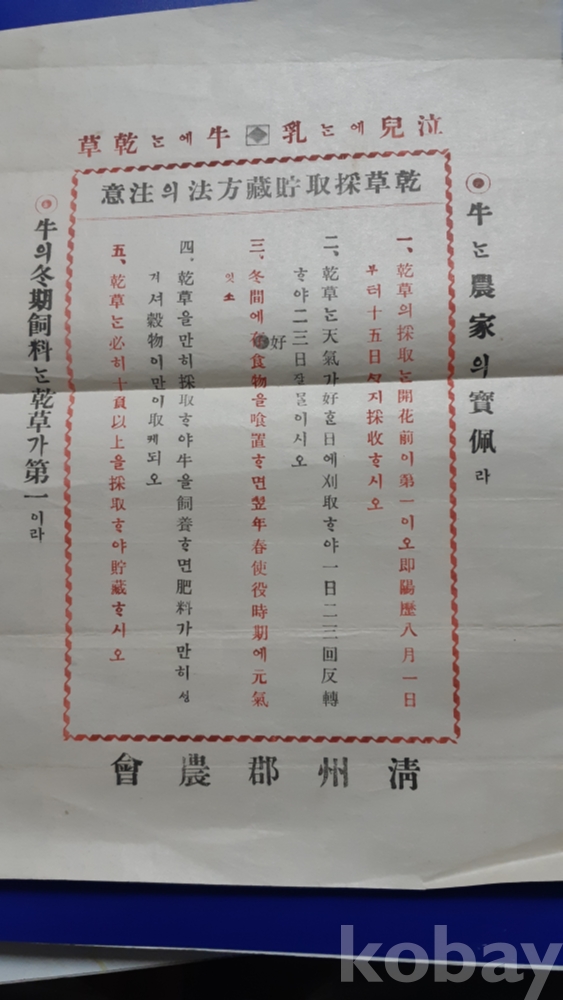 泣兒에ᄂᆞᆫ乳 牛에ᄂᆞᆫ乾草
乾草採取貯藏方法의注意
牛ᄂᆞᆫ農家의寶佩라
一、乾草의採取ᄂᆞᆫ開花前이第一이오即陽歷八月一日
부터十五日ᄭᆞ지採收ᄒᆞ시오
二、乾草ᄂᆞᆫ天氣가好ᄒᆞᆫ日에刈取ᄒᆞ야一日二三回反轉
ᄒᆞ야二三日잘물이시오
三、冬間에好食物을喰置ᄒᆞ면翌年春使役時期에元氣
잇소
四、乾草을만히採取ᄒᆞ야牛을飼養ᄒᆞ면肥料가만히셩
기셔穀物이만이取케되오
五、乾草ᄂᆞᆫ必히十貫以上을採取ᄒᆞ야貯藏ᄒᆞ시오
牛의冬期飼料ᄂᆞᆫ乾草가第一이라
淸州郡農會
kobay